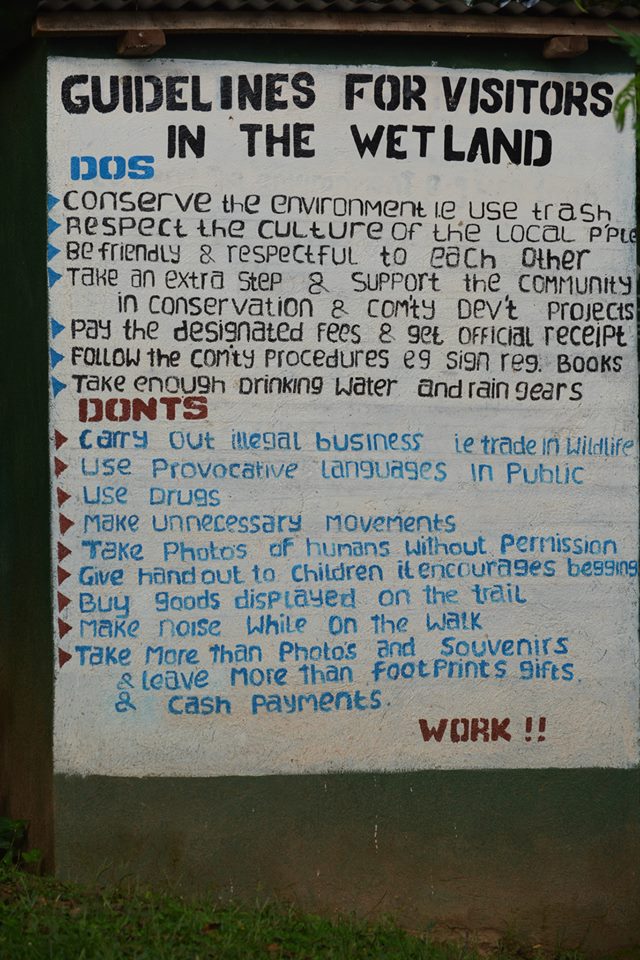 GUIDELINES FOR VISITORS
IN THE WETLAND
DOS
Conserve the environment i.e use trash
Respect the culture of the local P'ple
Be friendly & respectful to each other
Take an extra step & support the community
in conservation & com'ty Dev't projects
Pay the designated fees & get official receipt
Follow the com'ty procedures eg sign reg. Books
Take enough drinking water and rain gears
DONTS
Carry out illegal business ie trade in wildlife
Use provocative languages in Public
Use Drugs
Make unnecessary movements
Take Photo's of humans without permission
Give hand out to children it encourages begging
Buy goods displayed on the trail
Make noise while on the walk
Take more than Photo's and Souvenirs
& leave more than footprints gifts.
& cash payments.
WORK !!